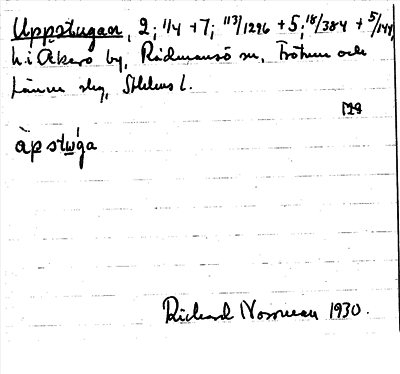 Uppstugan, 2; 1/4 + 7; 113/1296 + 5; 18/384 + 5/144,
h. i Åkerö by, Rådmansö sn, Frötuna och
Länna skg, Sthlms l.
àpstẃga
Richard 1930.